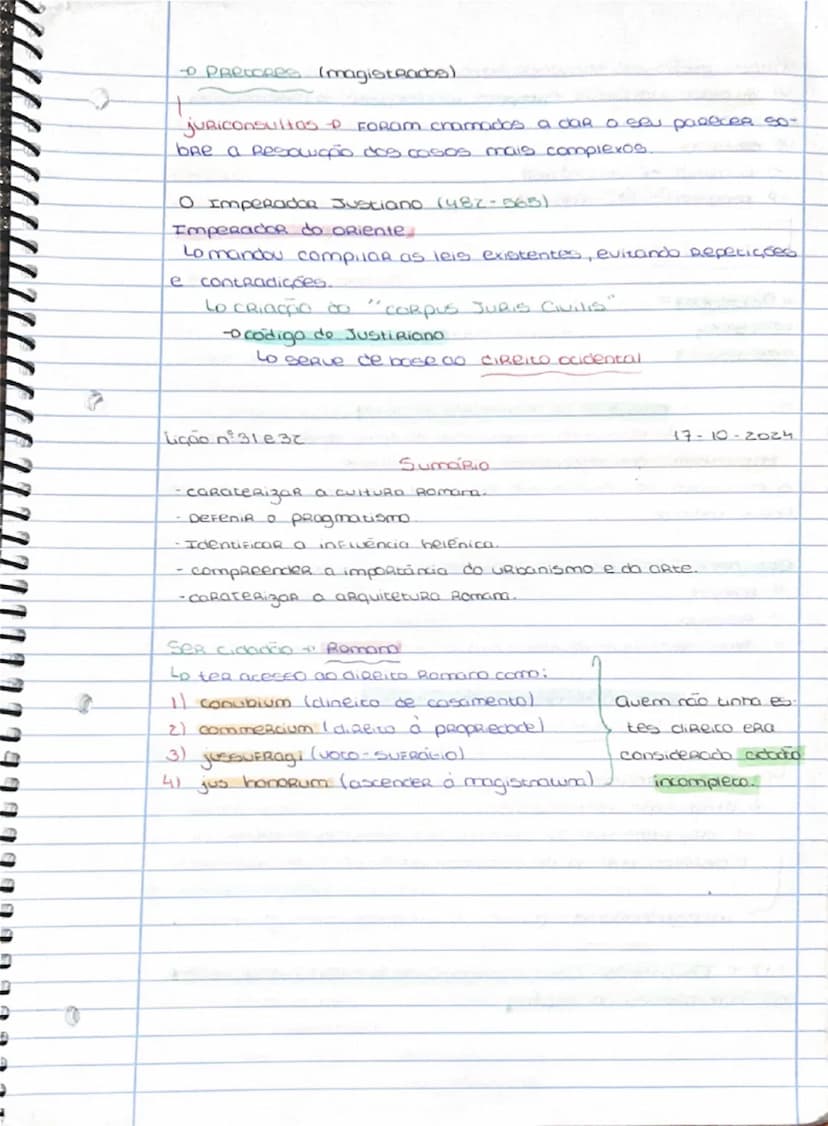 → Pretores (magistrados)
juriconsultos → Foram chamados a dar o seu parecer so-
bre a Resolução dos casos mais complexos.
O Imperador Justiano (482-565)
Imperador do oriente
↳ mandou compilar as leis existentes, evitando Repetições
e contradições.
↳ criação do "corpus Juris Civilis"
→ código de Justiniano
↳ serve de base ao direito ocidental
Lição nº 31 e 32 17-10-2024
Sumário
- caraterizar a cultura Romana.
- Defenir o pragmatismo.
- Identificar a influência helénica.
- compreender a importância do urbanismo e da arte.
- caraterizar a arquitetura Romana.
Ser cidadão → Romano
↳ ter acesso ao direito Romano como:
1) conubium (direito de casamento)
2) commercium (direito à propriedade)
3) jussufragi (voto-sufrágio)
4) jus honorum (ascender à magistratura)
Quem não tinha es-
tes direito era
considerado cidadão
incompleto.